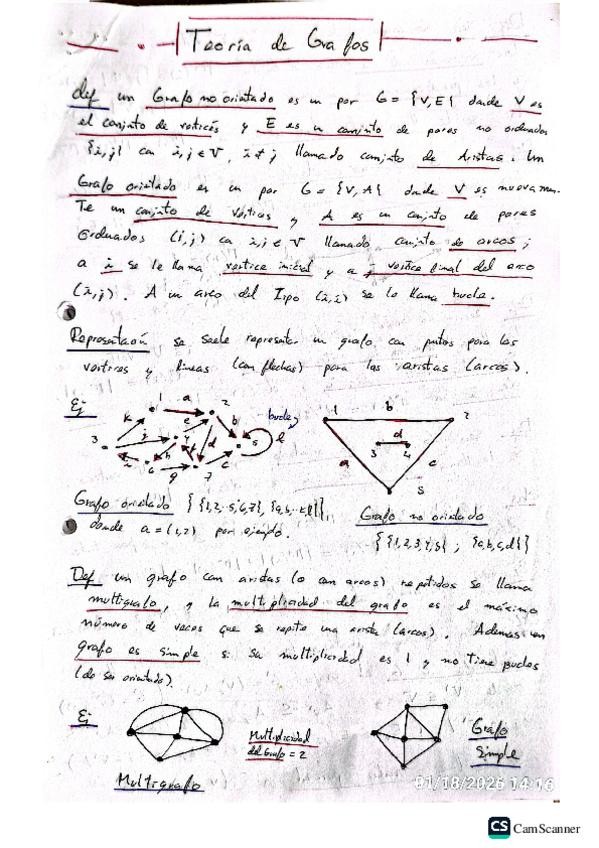 Teoría de Grafos
def un Grafo no orientado es un par G = {V,E} donde V es
el conjunto de vertices y E es un conjunto de pares no ordenados
{i,j} con i,j ∈ V, i ≠ j llamado conjunto de Aristas. Un
Grafo orientado es un par G = {V,A} donde V es nuevamen-
Te un conjunto de vertices y A es un conjunto de pares
Orduados (i,j) con i,j ∈ V llamado conjunto de arcos;
a i se le llama vertice inicial y a j vertice final del arco
(i,j). A un arco del Tipo (i,i) se le llama bucle.
Representación se suele representar un grafo con puntos para los
vertices y lineas (con flechas) para las aristas (arcos).
Ej
1 a 2 b bucle
k e
3 j 4 f d 5 l
i h
6 g 7 c
1 b 2
d
3 4
a c
5
Grafo orientado { {1,2,..5,6,7}, {a,b,..k,l} }
donde a = (1,2) por ejemplo.
Grafo no orientado
{ {1,2,3,4,5} ; {a,b,c,d} }
Def un grafo con aristas (o con arcos) repetidos se llama
multigrafo, y la multiplicidad del grafo es el máximo
número de veces que se repite una arista (arcos). Ademas un
grafo es simple si su multiplicidad es 1 y no tiene bucles
(de ser orientado).
Ej
Multiplicidad
del Grafo = 2
Multigrafo
Grafo
Simple
01/18/2026 14:16
CS CamScanner